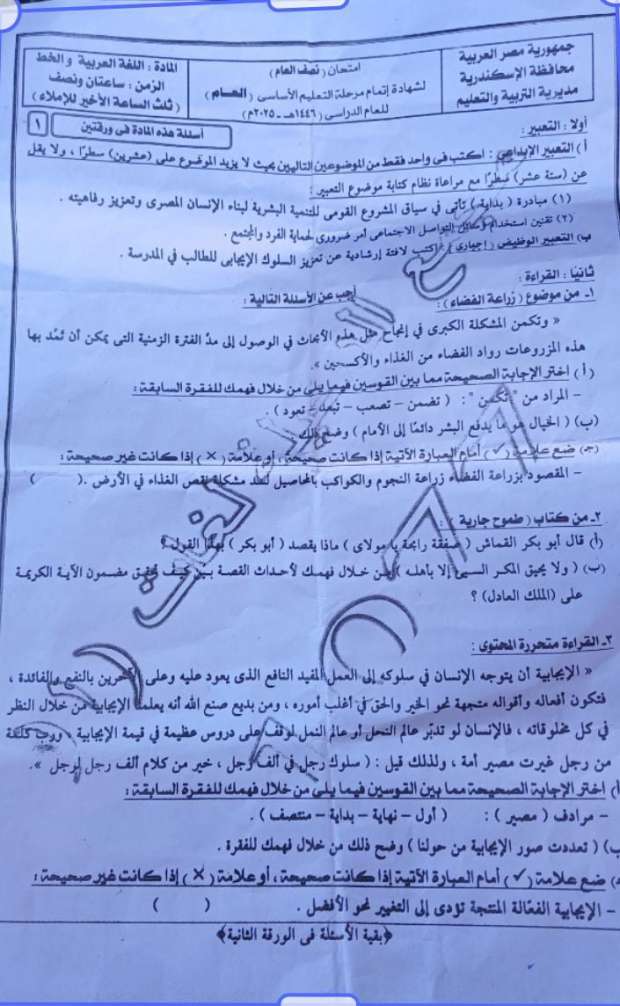 جمهورية مصر العربية
محافظة الإسكندرية
مديرية التربية والتعليم
امتحان (نصف العام)
لشهادة إتمام مرحلة التعليم الأساسى (العـــام)
للعام الدراسى (١٤٤٦هـ - ٢٠٢٥م)
المادة : اللغة العربية والخط
الزمن : ساعتان ونصف
(ثلث الساعة الأخير للإملاء)
أسئلة هذه المادة فى ورقتين
١
أولا : التعبير :
أ) التعبير الإبداعى : اكتب فى واحد فقط من الموضوعين التاليين بحيث لا يزيد الموضوع على (عشرين) سطرًا ، ولا يقل
عن (ستة عشر) سطرًا مع مراعاة نظام كتابة موضوع التعبير :
(١) مبادرة (بداية) تأتى في سياق المشروع القومى للتنمية البشرية لبناء الإنسان المصرى وتعزيز رفاهيته .
(٢) تقنين استخدام وسائل التواصل الاجتماعى أمر ضرورى لحماية الفرد والمجتمع .
ب) التعبير الوظيفى (إجبارى) : اكتب لافتة إرشادية عن تعزيز السلوك الإيجابى للطالب في المدرسة .
ثانيًا : القراءة :
أجب عن الأسئلة التالية :
١- من موضوع (زراعة الفضاء) :
« وتكمن المشكلة الكبرى في إنجاح مثل هذه الأبحاث في الوصول إلى مدّ الفترة الزمنية التى يمكن أن تُمد بها
هذه المزروعات رواد الفضاء من الغذاء والأكسجين ».
(أ) اختر الإجابة الصحيحة مما بين القوسين فيما يلى من خلال فهمك للفقرة السابقة :
- المراد من " تكمن " : ( تضمن - تصعب - تبعد - تعود ) .
(ب) ( الخيال هو ما يدفع البشر دائمًا إلى الأمام ) وضح ذلك
(جـ) ضع علامة (✓) أمام العبارة الآتية إذا كانت صحيحة ، أو علامة (×) إذا كانت غير صحيحة :
- المقصود بزراعة الفضاء زراعة النجوم والكواكب بالمحاصيل لسد مشكلة نقص الغذاء في الأرض . ( )
٢- من كتاب (طموح جارية) :
(أ) قال أبو بكر القماش ( صفقة رابحة يا مولاى ) ماذا يقصد ( أبو بكر ) بهذا القول ؟
(ب) ( ولا يحيق المكر السيئ إلا بأهله ) من خلال فهمك لأحداث القصة بين كيف تحقق مضمون الآية الكريمة
على (الملك العادل) ؟
٣- القراءة متحررة المحتوى :
« الإيجابية أن يتوجه الإنسان في سلوكه إلى العمل المفيد النافع الذى يعود عليه وعلى الآخرين بالنفع والفائدة ،
فتكون أفعاله وأقواله متجهة نحو الخير والحق في أغلب أموره ، ومن بديع صنع الله أنه يعلمنا الإيجابية من خلال النظر
في كل مخلوقاته ، فالإنسان لو تدبّر عالم النحل أو عالم النمل لوقف على دروس عظيمة في قيمة الإيجابية ، ورب كلمة
من رجل غيرت مصير أمة ، ولذلك قيل : ( سلوك رجل في ألف رجل ، خير من كلام ألف رجل لرجل ».
أ) اختر الإجابة الصحيحة مما بين القوسين فيما يلى من خلال فهمك للفقرة السابقة :
- مرادف ( مصير ) : ( أول - نهاية - بداية - منتصف ) .
ب) ( تعددت صور الإيجابية من حولنا ) وضح ذلك من خلال فهمك للفقرة .
) ضع علامة (✓) أمام العبارة الآتية إذا كانت صحيحة ، أو علامة (×) إذا كانت غير صحيحة :
- الإيجابية الفعّالة المنتجة تؤدى إلى التغيير نحو الأفضل . ( )
﴿بقية الأسئلة فى الورقة الثانية﴾